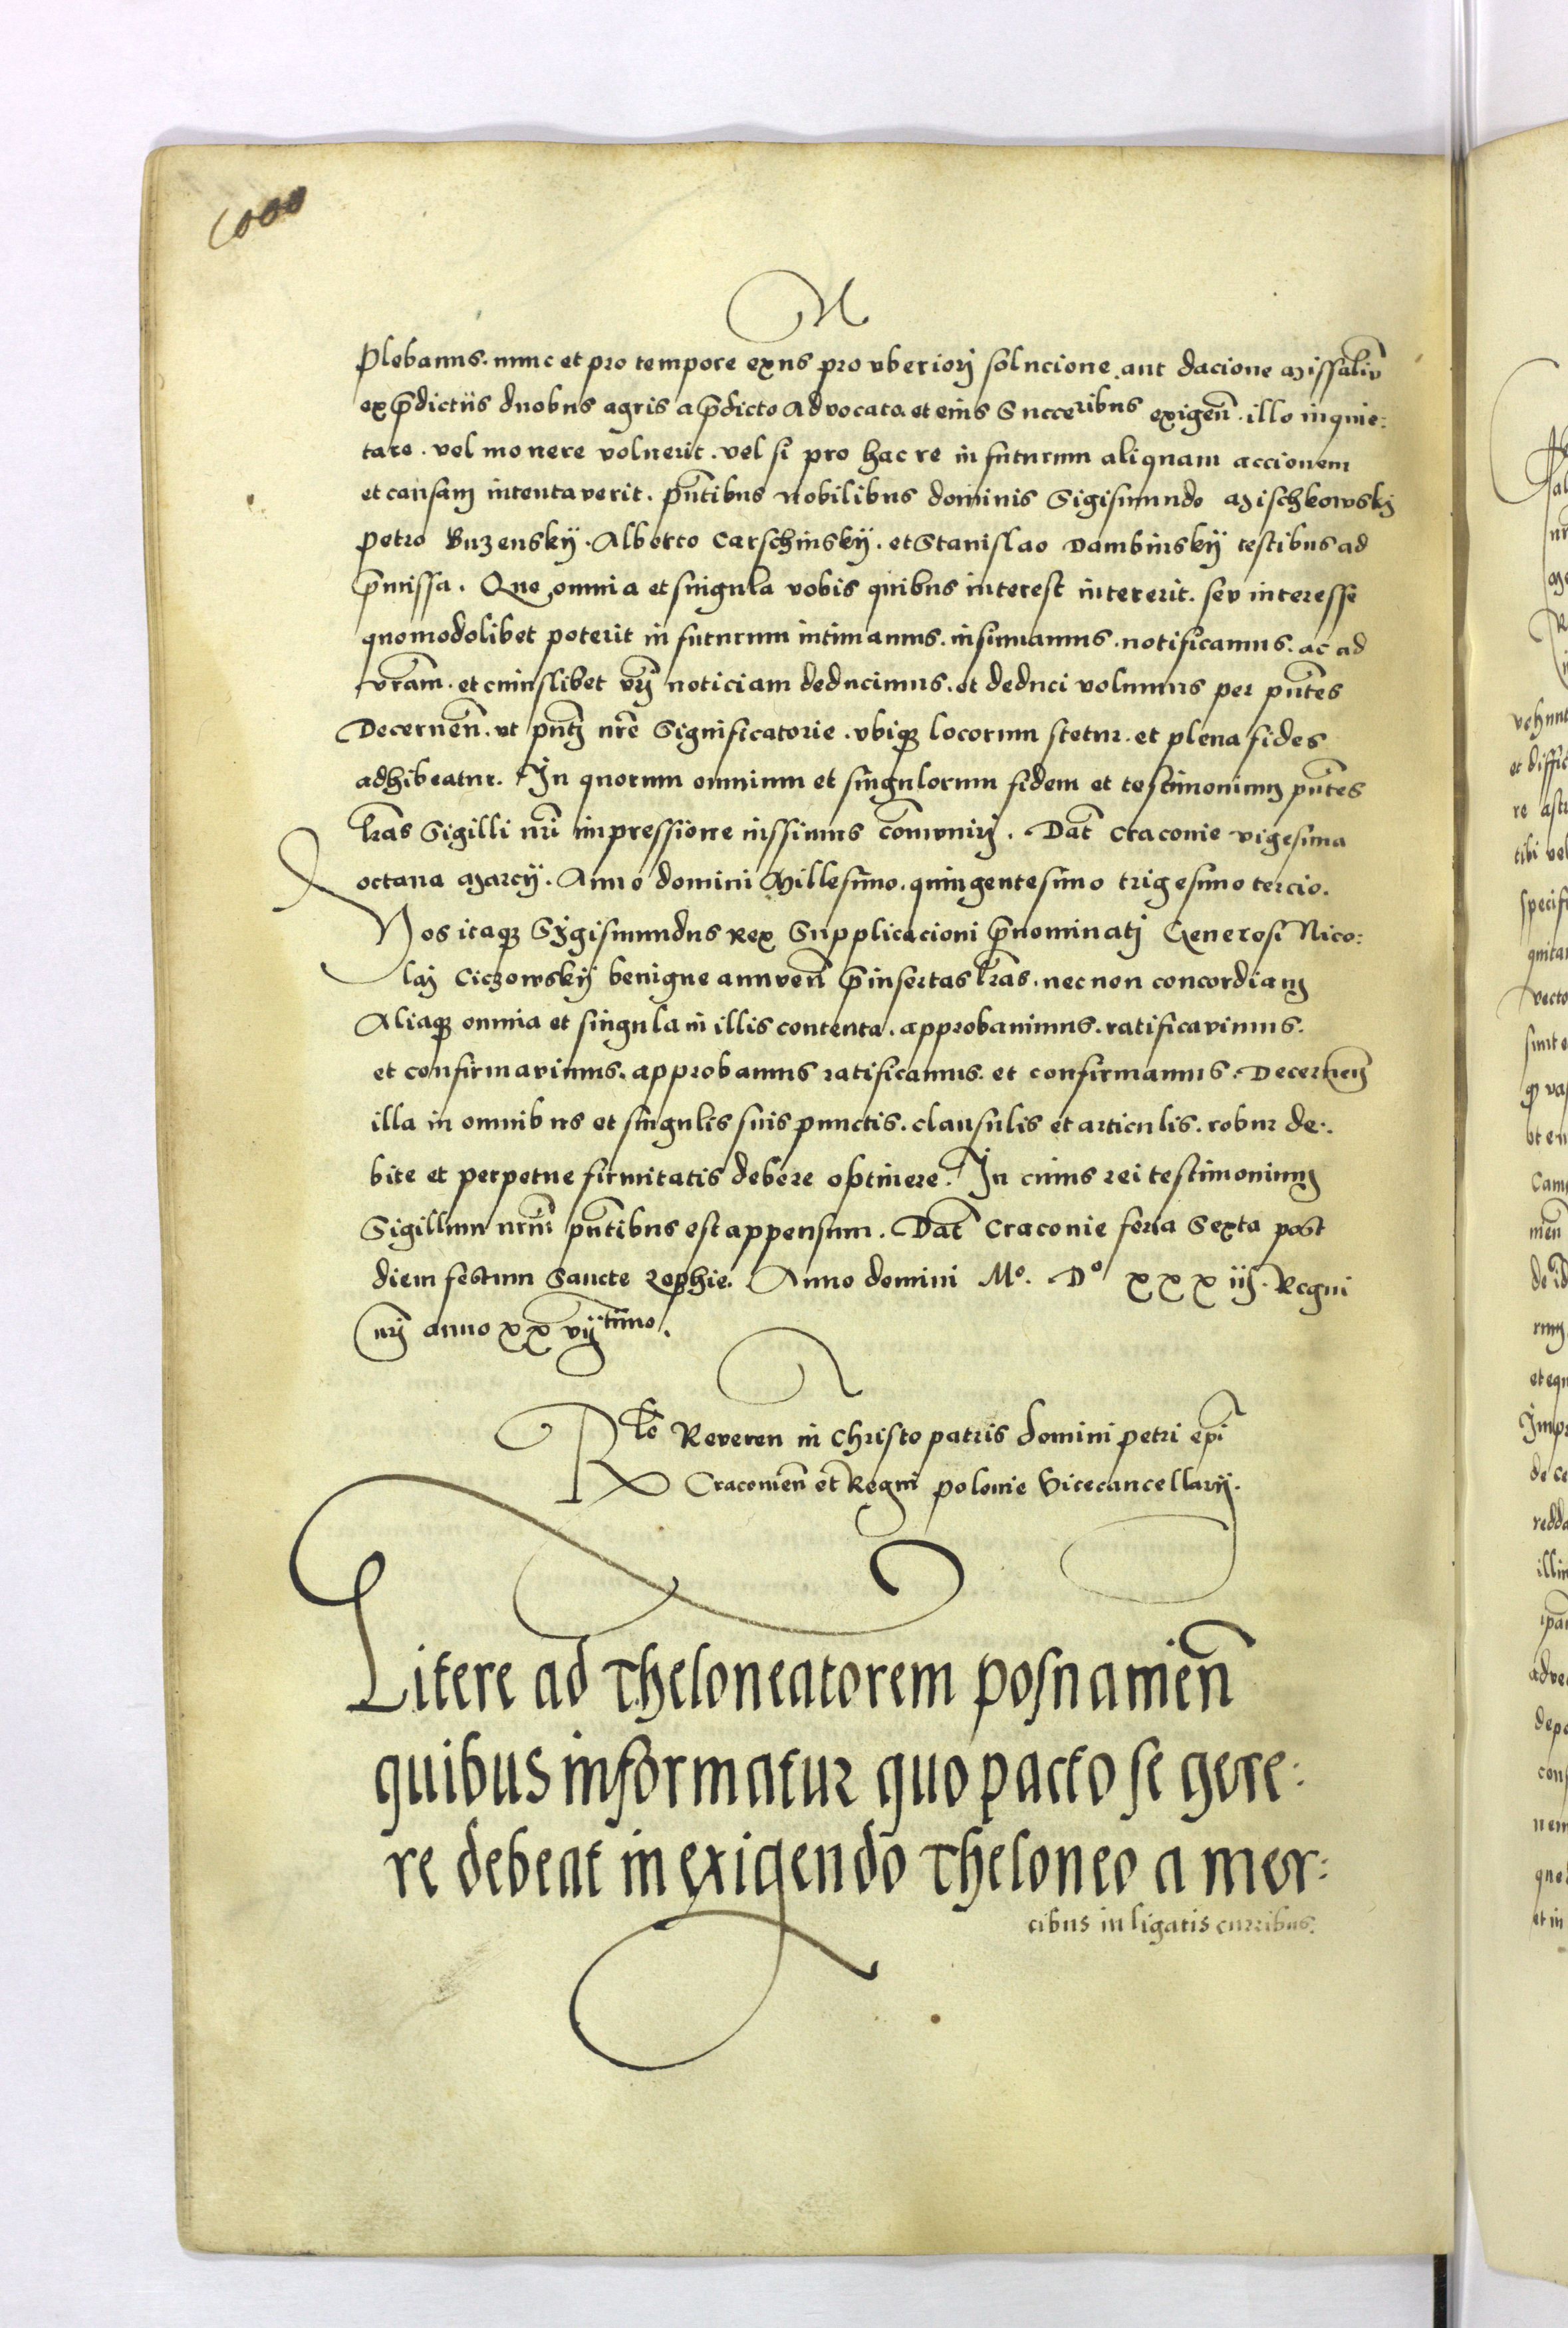 1000
Plebanus. nunc et pro tempore exns pro vberiorj solucione aut dacione missaliu
ex p̄dictiis duobus agris a p̄dicto Advocato. et eius Succeribus exigen̄. illo inquie:
tare. vel monere voluerit. vel si pro hac re in futurum aliquam accionem
et causam intentaverit. pn̄tibus nobilibus dominis Sigismundo Mischkowskj
Petro Buzenskÿ. Alberto Carschinskÿ. et Stanislao Dambinskÿ testibus ad
p̄missa. Que omnia et singula vobis quibus interest intererit. sev interesse
quomodolibet poterit in futurum intimamus. insinuamus. notificamus. ac ad
vr̄am. et cuiuslibet vr̄j noticiam deducimus. et deduci volumus per pn̄tes
Decernen̄. vt pn̄tj nr̄e Significatorie. vbiqꝫ locorum stetur. et plena fides
adhibeatur. In quorum omnium et singulorum fidem et testimonium pn̄tes
lr̄as Sigilli nr̄i impressione iussimus com̄unirj. Dat̄ Cracouie vigesima
octaua Marcÿ. Anno domini Millesimo. quingentesimo trigesimo tercio.
Nos itaqꝫ Sÿgismundus Rex Supplicacioni p̄nominatj Generosi Nico:
laj Ciczowskÿ benigne annuen̄ p̄insertas lr̄as. nec non concordiam
Aliaqꝫ omnia et singula in illis contenta. approbauimus. ratificavimus.
et confirmavimus. approbamus ratificamus. et confirmamus. Decernen̄
illa in omnibus et singulis suis punctis. clausulis et articulis. robur de:
bite et perpetue firmitatis debere optinere. In cuius rei testimonium
Sigillum nr̄um pn̄tibus est appensum. Dat̄ Cracouie feria Sexta post
diem festum Sancte Zophie. Anno domini Mo. Do xxxiij. Regni
nr̄j anno xxvijtimo.
Rlo Reveren in Christo patris domini petri ep̄i
Cracouien̄ et Regni polonie Vicecancellarÿ.
Litere ad Theloneatorem posnanien̄
quibus informatur quo pacto se gere:
re debeat in exigendo Theloneo a mer:
cibus in ligatis curribus.